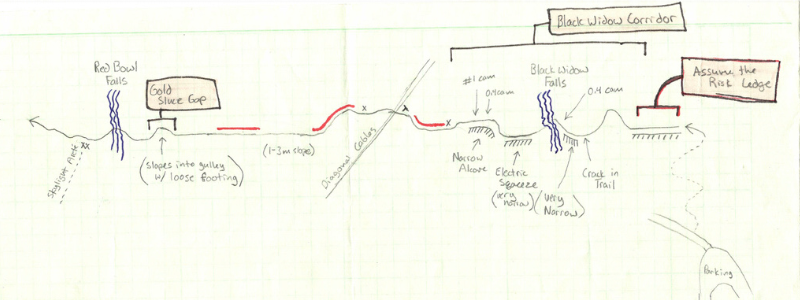 Black Widow Corridor
Red Bowl
Falls
Gold
Sluce Gap
#1 cam
0.4 cam
Black Widow
Falls
0.4 cam
Assume the
Risk Ledge
x
x
x
Skylight Alete
xx
(Slopes into gulley
w/ loose footing)
(1-3m slope)
Diagonal Cables
Narrow
Alcove
Electric
Squeeze
(very
narrow)
(Very
Narrow)
Crack in
Trail
Parking